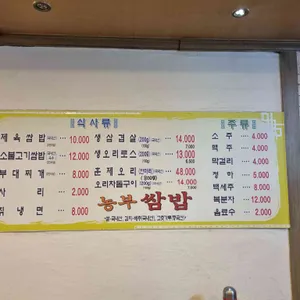 식사류
제육쌈밥 ··· 10.000
소불고기쌈밥 ··· 12.000
부대찌개 ··· 8.000
사리 ··· 2.000
냉면 ··· 8.000
생삼겹살 ··· 14.000
생오리로스 ··· 13.000
훈제오리 ··· 48.000
오리자돌구이 ··· 14.000
주류
소주 ··· 4.000
맥주 ··· 4.000
막걸리 ··· 4.000
청하 ··· 5.000
백세주 ··· 8.000
복분자 ··· 12.000
음료수 ··· 2.000
농부 쌈밥